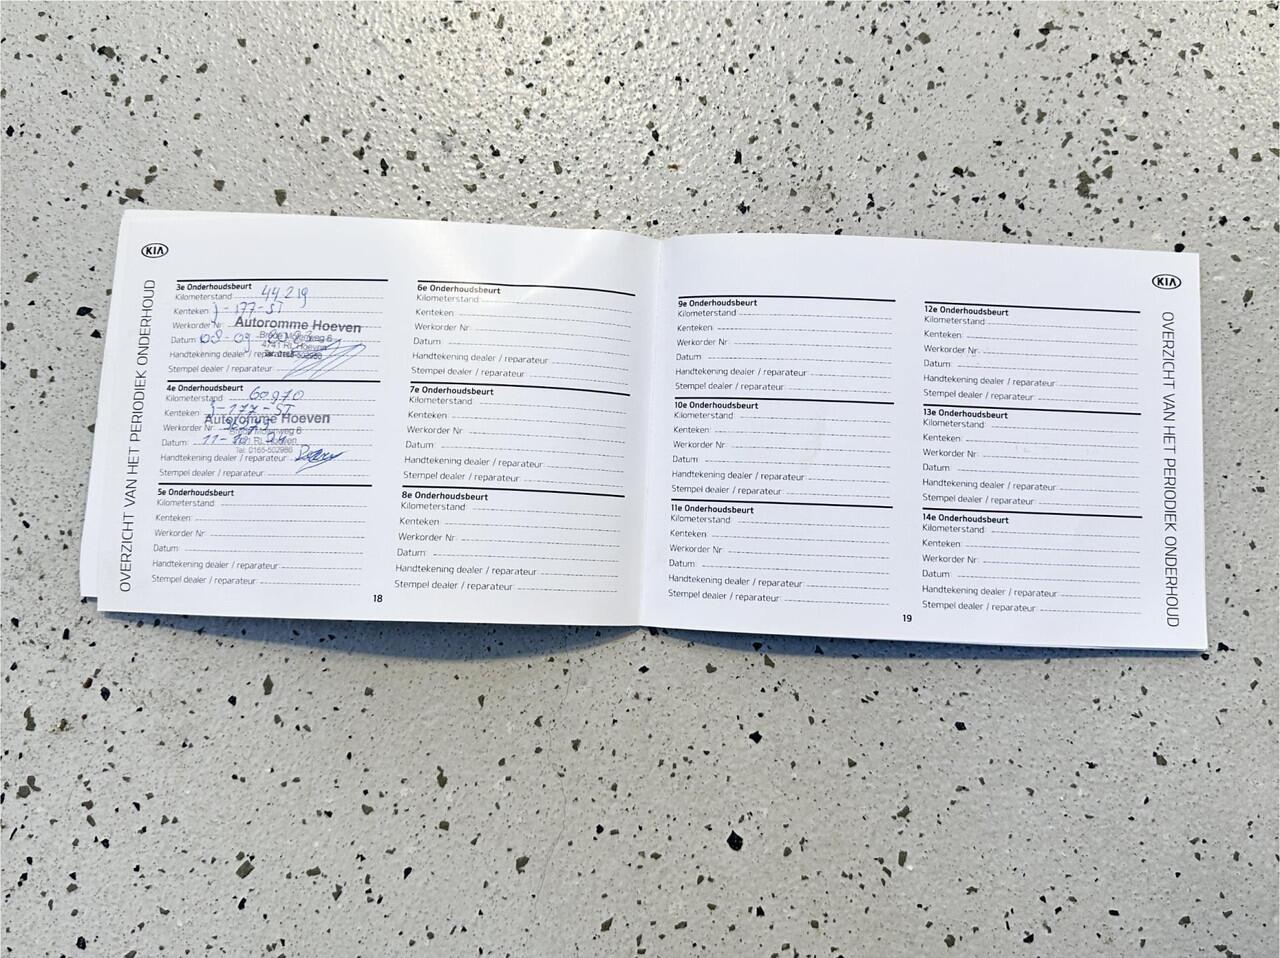 KIA
OVERZICHT VAN HET PERIODIEK ONDERHOUD
3e Onderhoudsbeurt
Kilometerstand 44219
Kenteken J-177-ST
Werkorder Nr
Autoromme Hoeven
Datum 08-09-
4741 RL Hoeven
Handtekening dealer / reparateur
Stempel dealer / reparateur
4e Onderhoudsbeurt
Kilometerstand 60970
Kenteken J-177-ST
Autoromme Hoeven
Werkorder Nr
Datum: 11-
RL Hoeven
Tel: 0165-502980
Handtekening dealer / reparateur
Stempel dealer / reparateur
5e Onderhoudsbeurt
Kilometerstand
Kenteken:
Werkorder Nr:
Datum:
Handtekening dealer / reparateur:
Stempel dealer / reparateur:
6e Onderhoudsbeurt
Kilometerstand:
Kenteken:
Werkorder Nr
Datum:
Handtekening dealer / reparateur
Stempel dealer / reparateur:
7e Onderhoudsbeurt
Kilometerstand:
Kenteken:
Werkorder Nr
Datum:
Handtekening dealer / reparateur:
Stempel dealer / reparateur:
8e Onderhoudsbeurt
Kilometerstand:
Kenteken:
Werkorder Nr
Datum:
Handtekening dealer / reparateur
Stempel dealer / reparateur:
18
9e Onderhoudsbeurt
Kilometerstand:
Kenteken:
Werkorder Nr
Datum:
Handtekening dealer / reparateur:
Stempel dealer / reparateur:
10e Onderhoudsbeurt
Kilometerstand:
Kenteken:
Werkorder Nr
Datum:
Handtekening dealer / reparateur:
Stempel dealer / reparateur:
11e Onderhoudsbeurt
Kilometerstand:
Kenteken:
Werkorder Nr
Datum:
Handtekening dealer / reparateur:
Stempel dealer / reparateur:
12e Onderhoudsbeurt
Kilometerstand:
Kenteken:
Werkorder Nr:
Datum:
Handtekening dealer / reparateur:
Stempel dealer / reparateur:
13e Onderhoudsbeurt
Kilometerstand:
Kenteken:
Werkorder Nr:
Datum:
Handtekening dealer / reparateur:
Stempel dealer / reparateur:
14e Onderhoudsbeurt
Kilometerstand:
Kenteken:
Werkorder Nr:
Datum:
Handtekening dealer / reparateur:
Stempel dealer / reparateur:
19
KIA
OVERZICHT VAN HET PERIODIEK ONDERHOUD